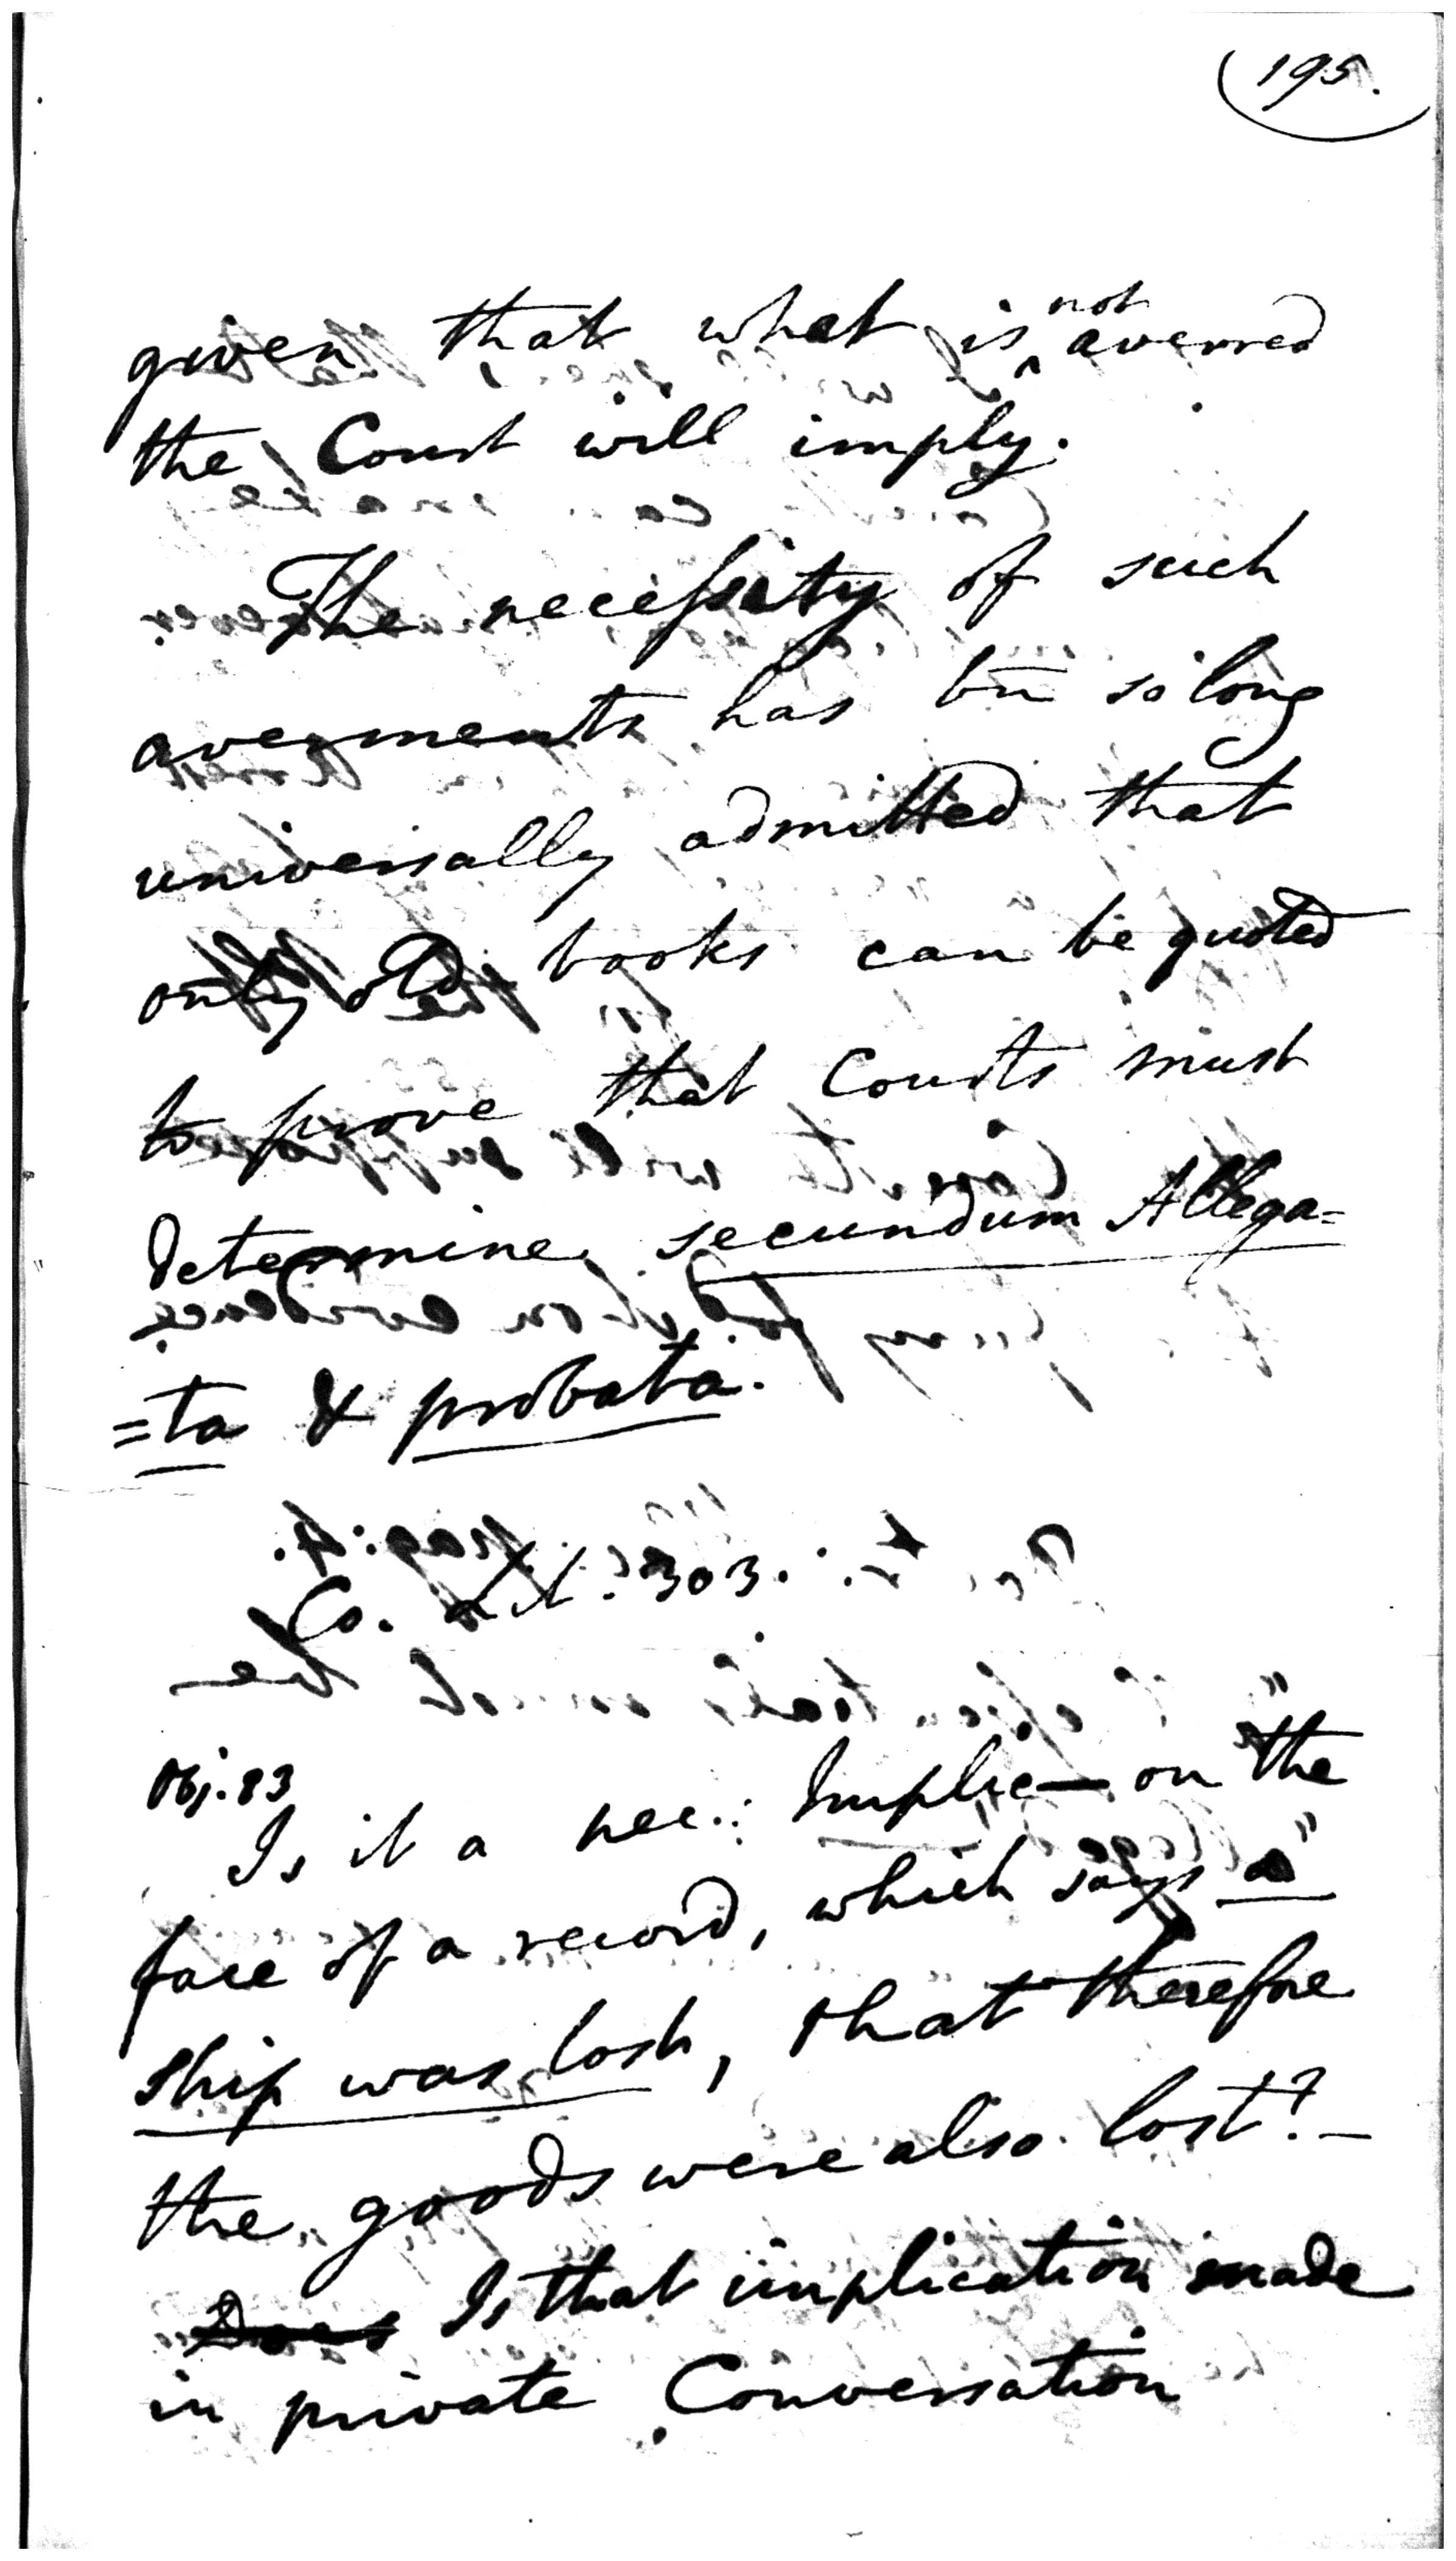 195.
given that what is not averred
the Court will imply.
The necessity of such
averments has bn so long
universally admitted that
only old books can be quoted
to prove that Courts must
determine secundum Allega=
=ta & probata.
Co. Lit. 303.
Obj. 83
Is it a nec.: Implic— on "the
face of a record, which says "a
ship was lost, that therefore
the goods were also lost?—
Does Is that implication made
in private Conversation